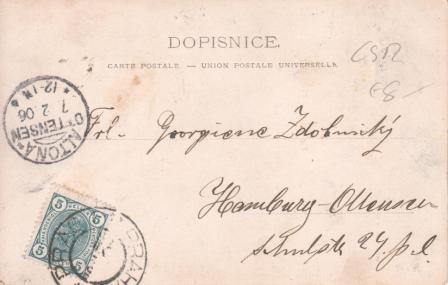 DOPISNICE.
CARTE POSTALE – UNION POSTALE UNIVERSELLE.
ČSR
68-
ALTONA *
OTTENSEN
7. 2. 06
* 12-1 N
Frl. Georgiene Zdobnický
Hamburg-Ottensen
5
5
5
5
PRAHA